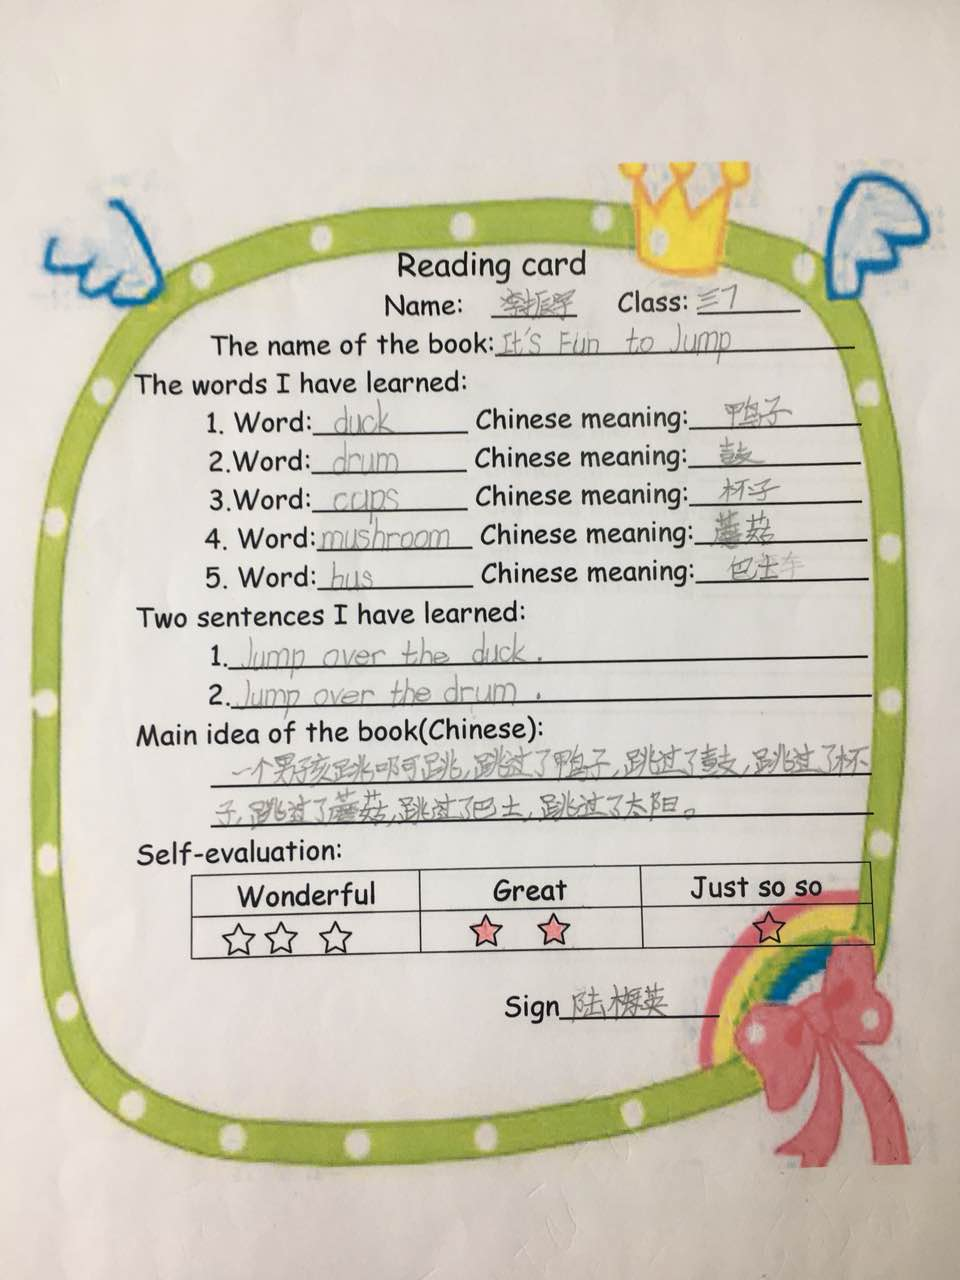 Reading card
Name: 李振宇 Class: 三7
The name of the book: It's Fun to Jump
The words I have learned:
1. Word: duck Chinese meaning: 鸭子
2.Word: drum Chinese meaning: 鼓
3.Word: cups Chinese meaning: 杯子
4. Word: mushroom Chinese meaning: 蘑菇
5. Word: bus Chinese meaning: 巴士车
Two sentences I have learned:
1. Jump over the duck.
2. Jump over the drum.
Main idea of the book(Chinese):
一个男孩跳啊跳,跳过了鸭子,跳过了鼓,跳过了杯
子,跳过了蘑菇,跳过了巴士,跳过了太阳。
Self-evaluation:
Wonderful Great Just so so
Sign 陆梅英